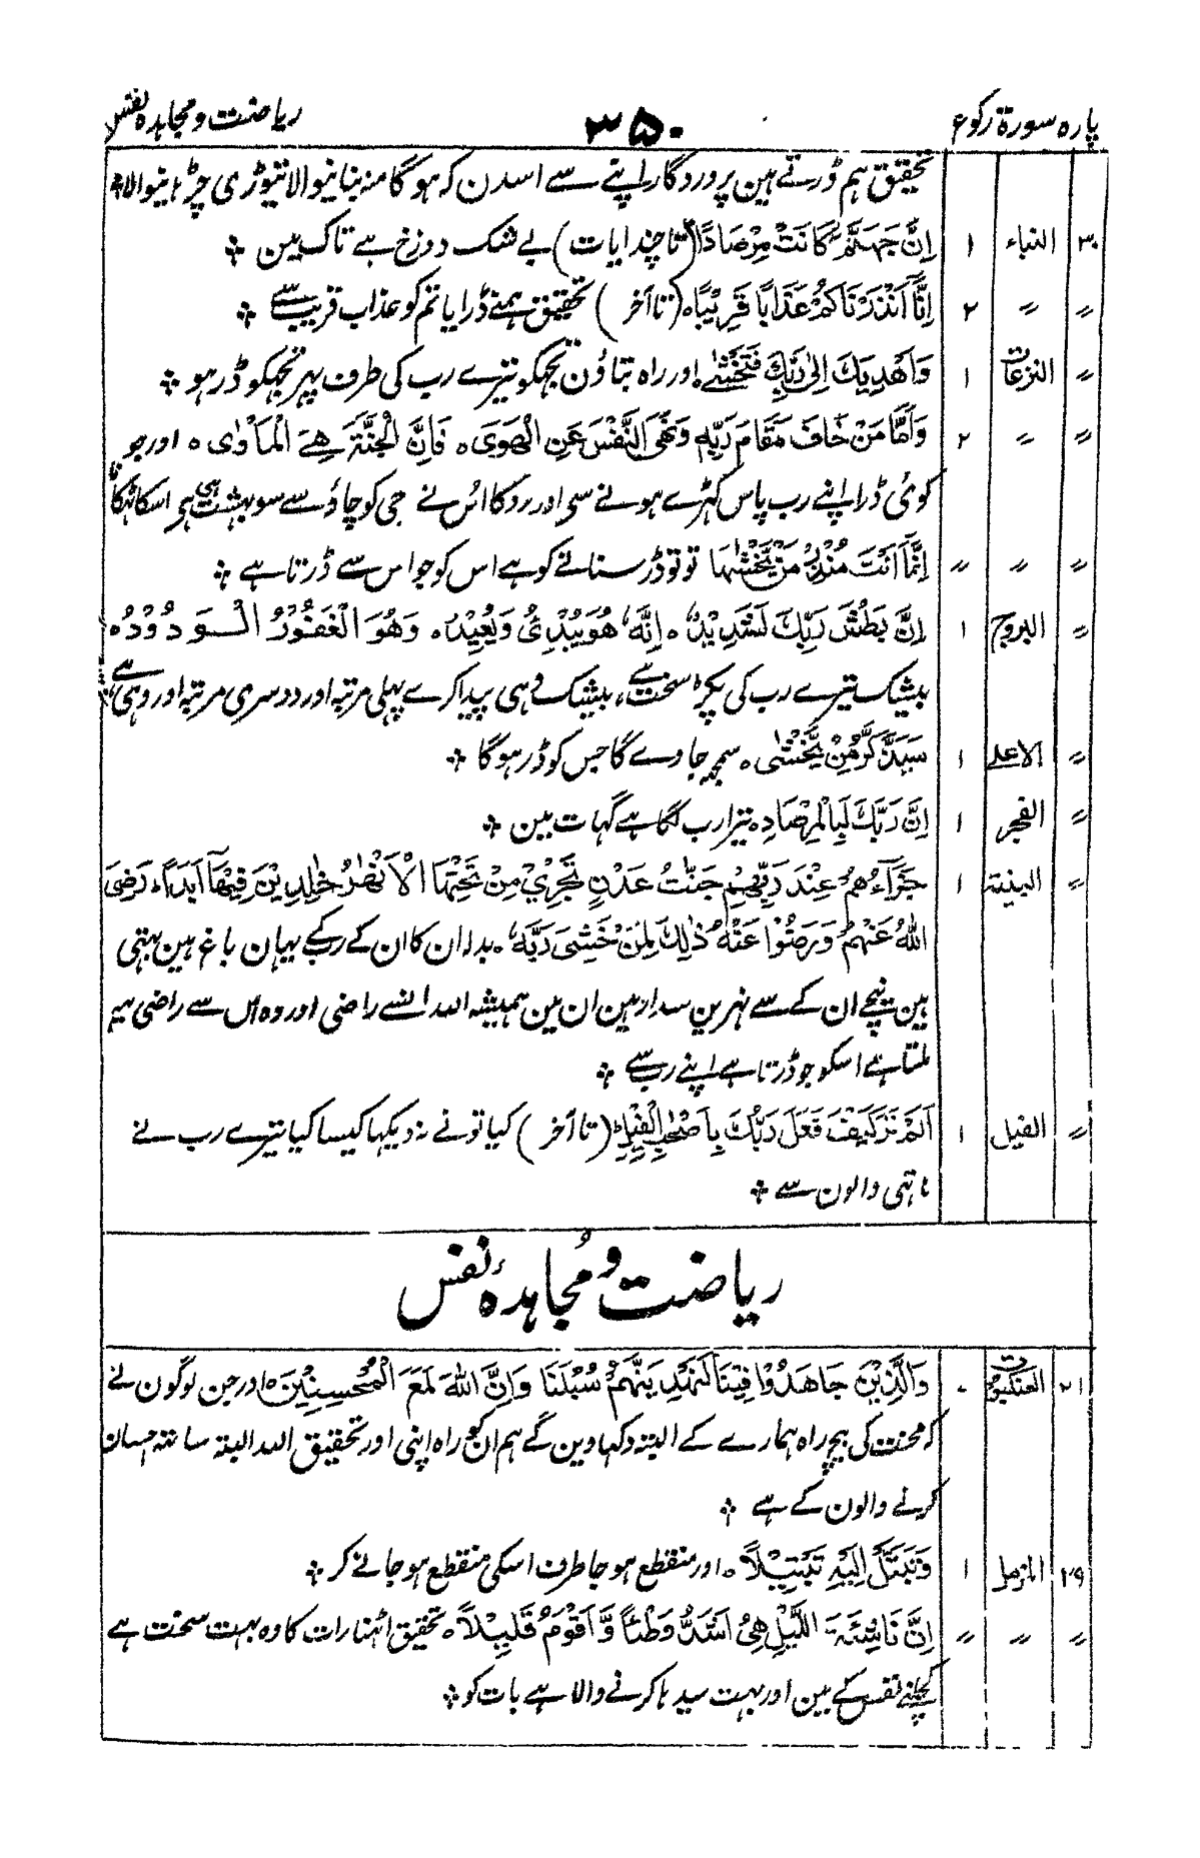 پارہ سورۃ رکوع ۳۵۰ ریاضت و مجاہدہ نفس
تحقیق ہم ڈرتے ہین پروردگار اپنے سے اسدن کہ ہوگا منہ بنانیوالا تیوڑی چڑہانیوالا ۞
۳۰ النباء ۱ اِنَّ جَهَنَّمَ كَانَتْ مِرْصَادًا (تا چند ایات) بے شک دوزخ ہے تاک مین ۞
〃 〃 ۲ اِنَّا اَنْذَرْنَاكُمْ عَذَابًا قَرِيْبًا ہ (تا آخر) تحقیق ہمنے ڈرایا تم کو عذاب قریب سے ۞
〃 النزعات ۱ وَاَهْدِيَكَ اِلٰى رَبِّكَ فَتَخْشٰى ہ اور راہ بتاؤن تجہکو تیرے رب کی طرف پہر تجہکو ڈر ہو ۞
〃 〃 ۲ وَاَمَّا مَنْ خَافَ مَقَامَ رَبِّهٖ وَنَهَى النَّفْسَ عَنِ الْهَوٰى ہ فَاِنَّ الْجَنَّةَ هِيَ الْمَاْوٰى ہ اور جو
کوئی ڈرا اپنے رب پاس کہڑے ہونے سی اور روکا اس نے جی کو چاؤ سے سو بہشت ہی ہے اسکا ٹہکانا
〃 〃 〃 اِنَّمَا اَنْتَ مُنْذِرُ مَنْ يَّخْشٰهَا تو تو ڈر سنانے کو ہے اس کو جو اس سے ڈرتا ہے ۞
〃 البروج ۱ اِنَّ بَطْشَ رَبِّكَ لَشَدِيْدٌ ہ اِنَّهٗ هُوَ يُبْدِئُ وَيُعِيْدُ ہ وَهُوَ الْغَفُوْرُ الْوَدُوْدُ ہ
بیشک تیرے رب کی پکڑ سخت ہے، بیشک وہی پیدا کرے پہلی مرتبہ اور دوسری مرتبہ اور وہی ہے
〃 الاعلے ۱ سَيَذَّكَّرُ مَنْ يَّخْشٰى ہ سمجہ جاوے گا جس کو ڈر ہوگا ۞
〃 الفجر ۱ اِنَّ رَبَّكَ لَبِالْمِرْصَادِ ہ تیرا رب لگا ہے گہات مین ۞
〃 البینۃ ۱ جَزَآءُهُمْ عِنْدَ رَبِّهِمْ جَنّٰتُ عَدْنٍ تَجْرِيْ مِنْ تَحْتِهَا الْاَنْهٰرُ خٰلِدِيْنَ فِيْهَا اَبَدًا ہ رَضِىَ
اللّٰهُ عَنْهُمْ وَرَضُوْا عَنْهُ ذٰلِكَ لِمَنْ خَشِىَ رَبَّهٗ ہ بدلہ ان کا ان کے رب کے یہان باغ ہین بہتی
ہین نیچے ان کے سے نہرین سدا رہین ان مین ہمیشہ اللہ انسے راضی اور وہ اس سے راضی یہ
ملتا ہے اسکو جو ڈرتا ہے اپنے رب سے ۞
〃 الفیل ۱ اَلَمْ تَرَ كَيْفَ فَعَلَ رَبُّكَ بِاَصْحٰبِ الْفِيْلِ (تا آخر) کیا تو نے نہ دیکہا کیسا کیا تیرے رب نے
ہاتی والون سے ۞
ریاضت و مجاہدۂ نفس
۲۱ العنکبوت ۰ وَالَّذِيْنَ جَاهَدُوْا فِيْنَا لَنَهْدِيَنَّهُمْ سُبُلَنَا وَاِنَّ اللّٰهَ لَمَعَ الْمُحْسِنِيْنَ ہ اور جن لوگون نے
کہ محنت کی بیچ راہ ہمارے کے البتہ دکہاوین گے ہم ان کو راہ اپنی اور تحقیق اللہ البتہ ساتہ احسان
کرنے والون کے ہے ۞
۲۹ المزمل ۱ وَتَبَتَّلْ اِلَيْهِ تَبْتِيْلًا ہ اور منقطع ہو جا طرف اسکی منقطع ہو جانے کر ۞
〃 〃 〃 اِنَّ نَاشِئَةَ اللَّيْلِ هِيَ اَشَدُّ وَطْئًا وَّاَقْوَمُ قِيْلًا ہ تحقیق اٹہنا رات کا وہ بہت سخت ہے
کچلنے نفس کے مین اور بہت سیدہا کرنے والا ہے بات کو ۞